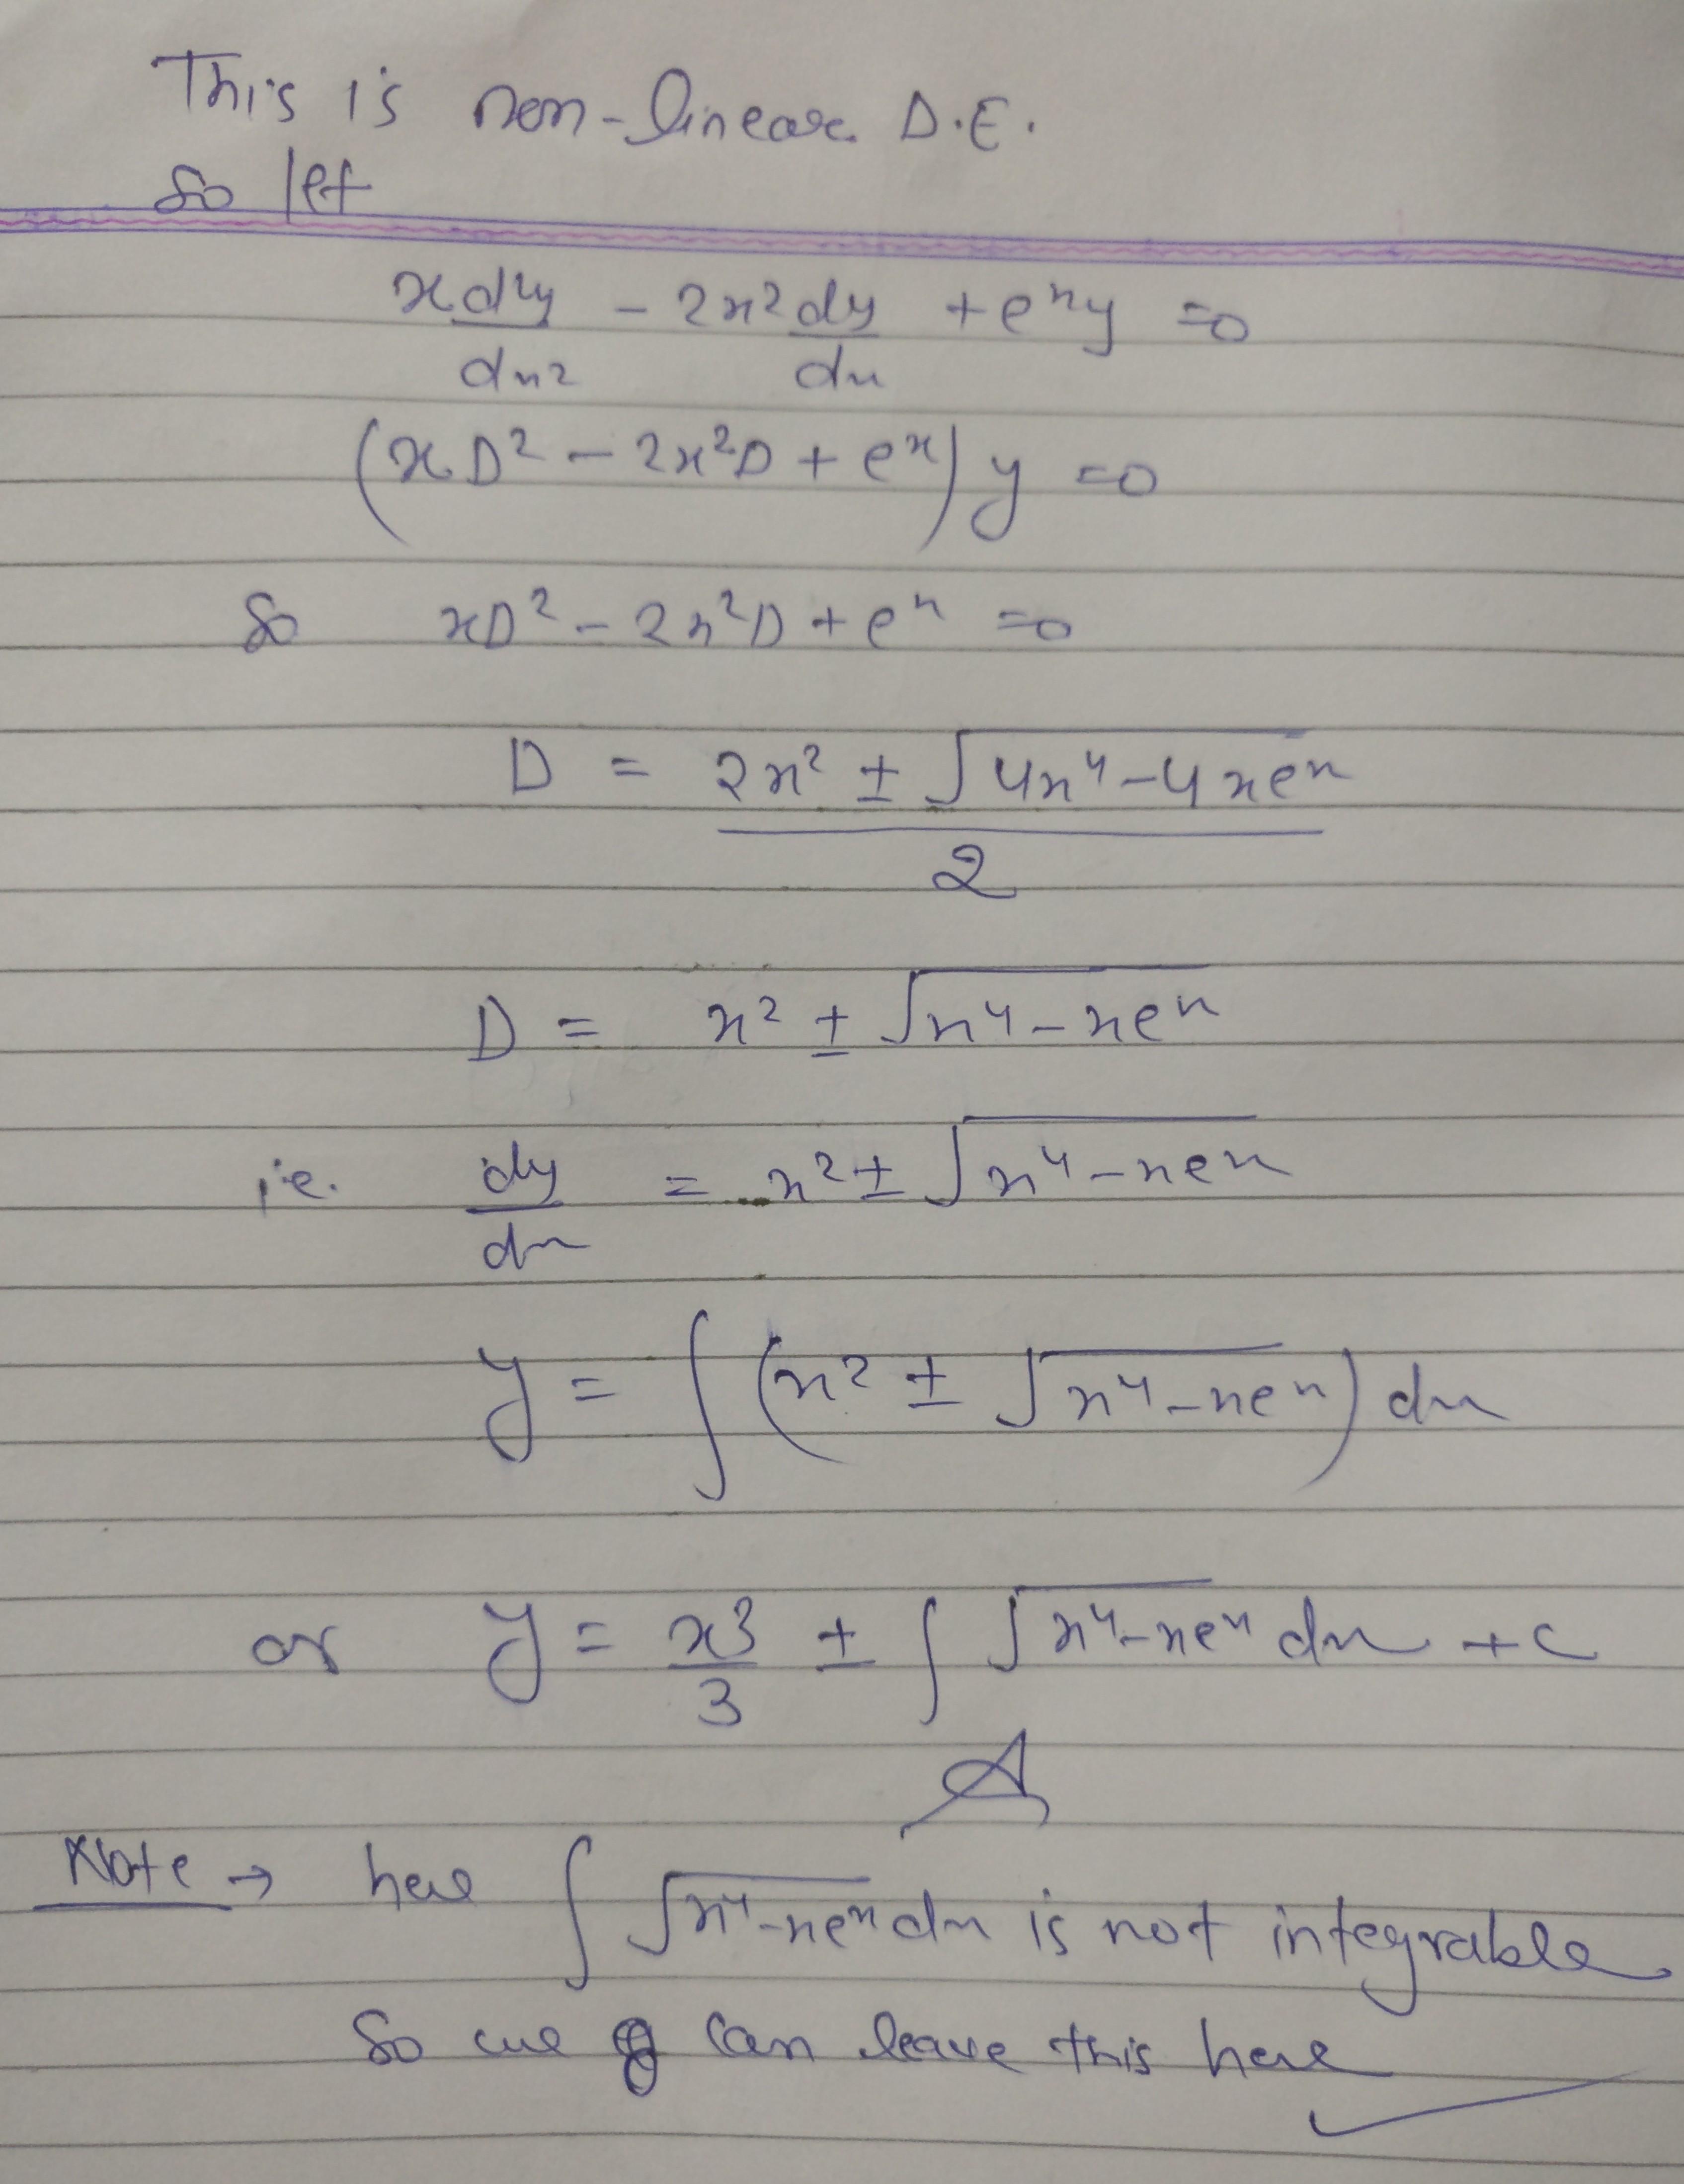 This is non-linear D.E.
So let
x d²y/dx² - 2x² dy/dx + eˣy = 0
(xD² - 2x²D + eˣ) y = 0
So xD² - 2x²D + eˣ = 0
D = (2x² ± √(4x⁴ - 4xeˣ))/2
D = x² ± √(x⁴ - xeˣ)
i.e. dy/dx = x² ± √(x⁴ - xeˣ)
y = ∫ (x² ± √(x⁴ - xeˣ)) dx
or y = x³/3 ± ∫ √(x⁴ - xeˣ) dx + c
Note → here ∫ √(x⁴ - xeˣ) dx is not integrable
So we can leave this here